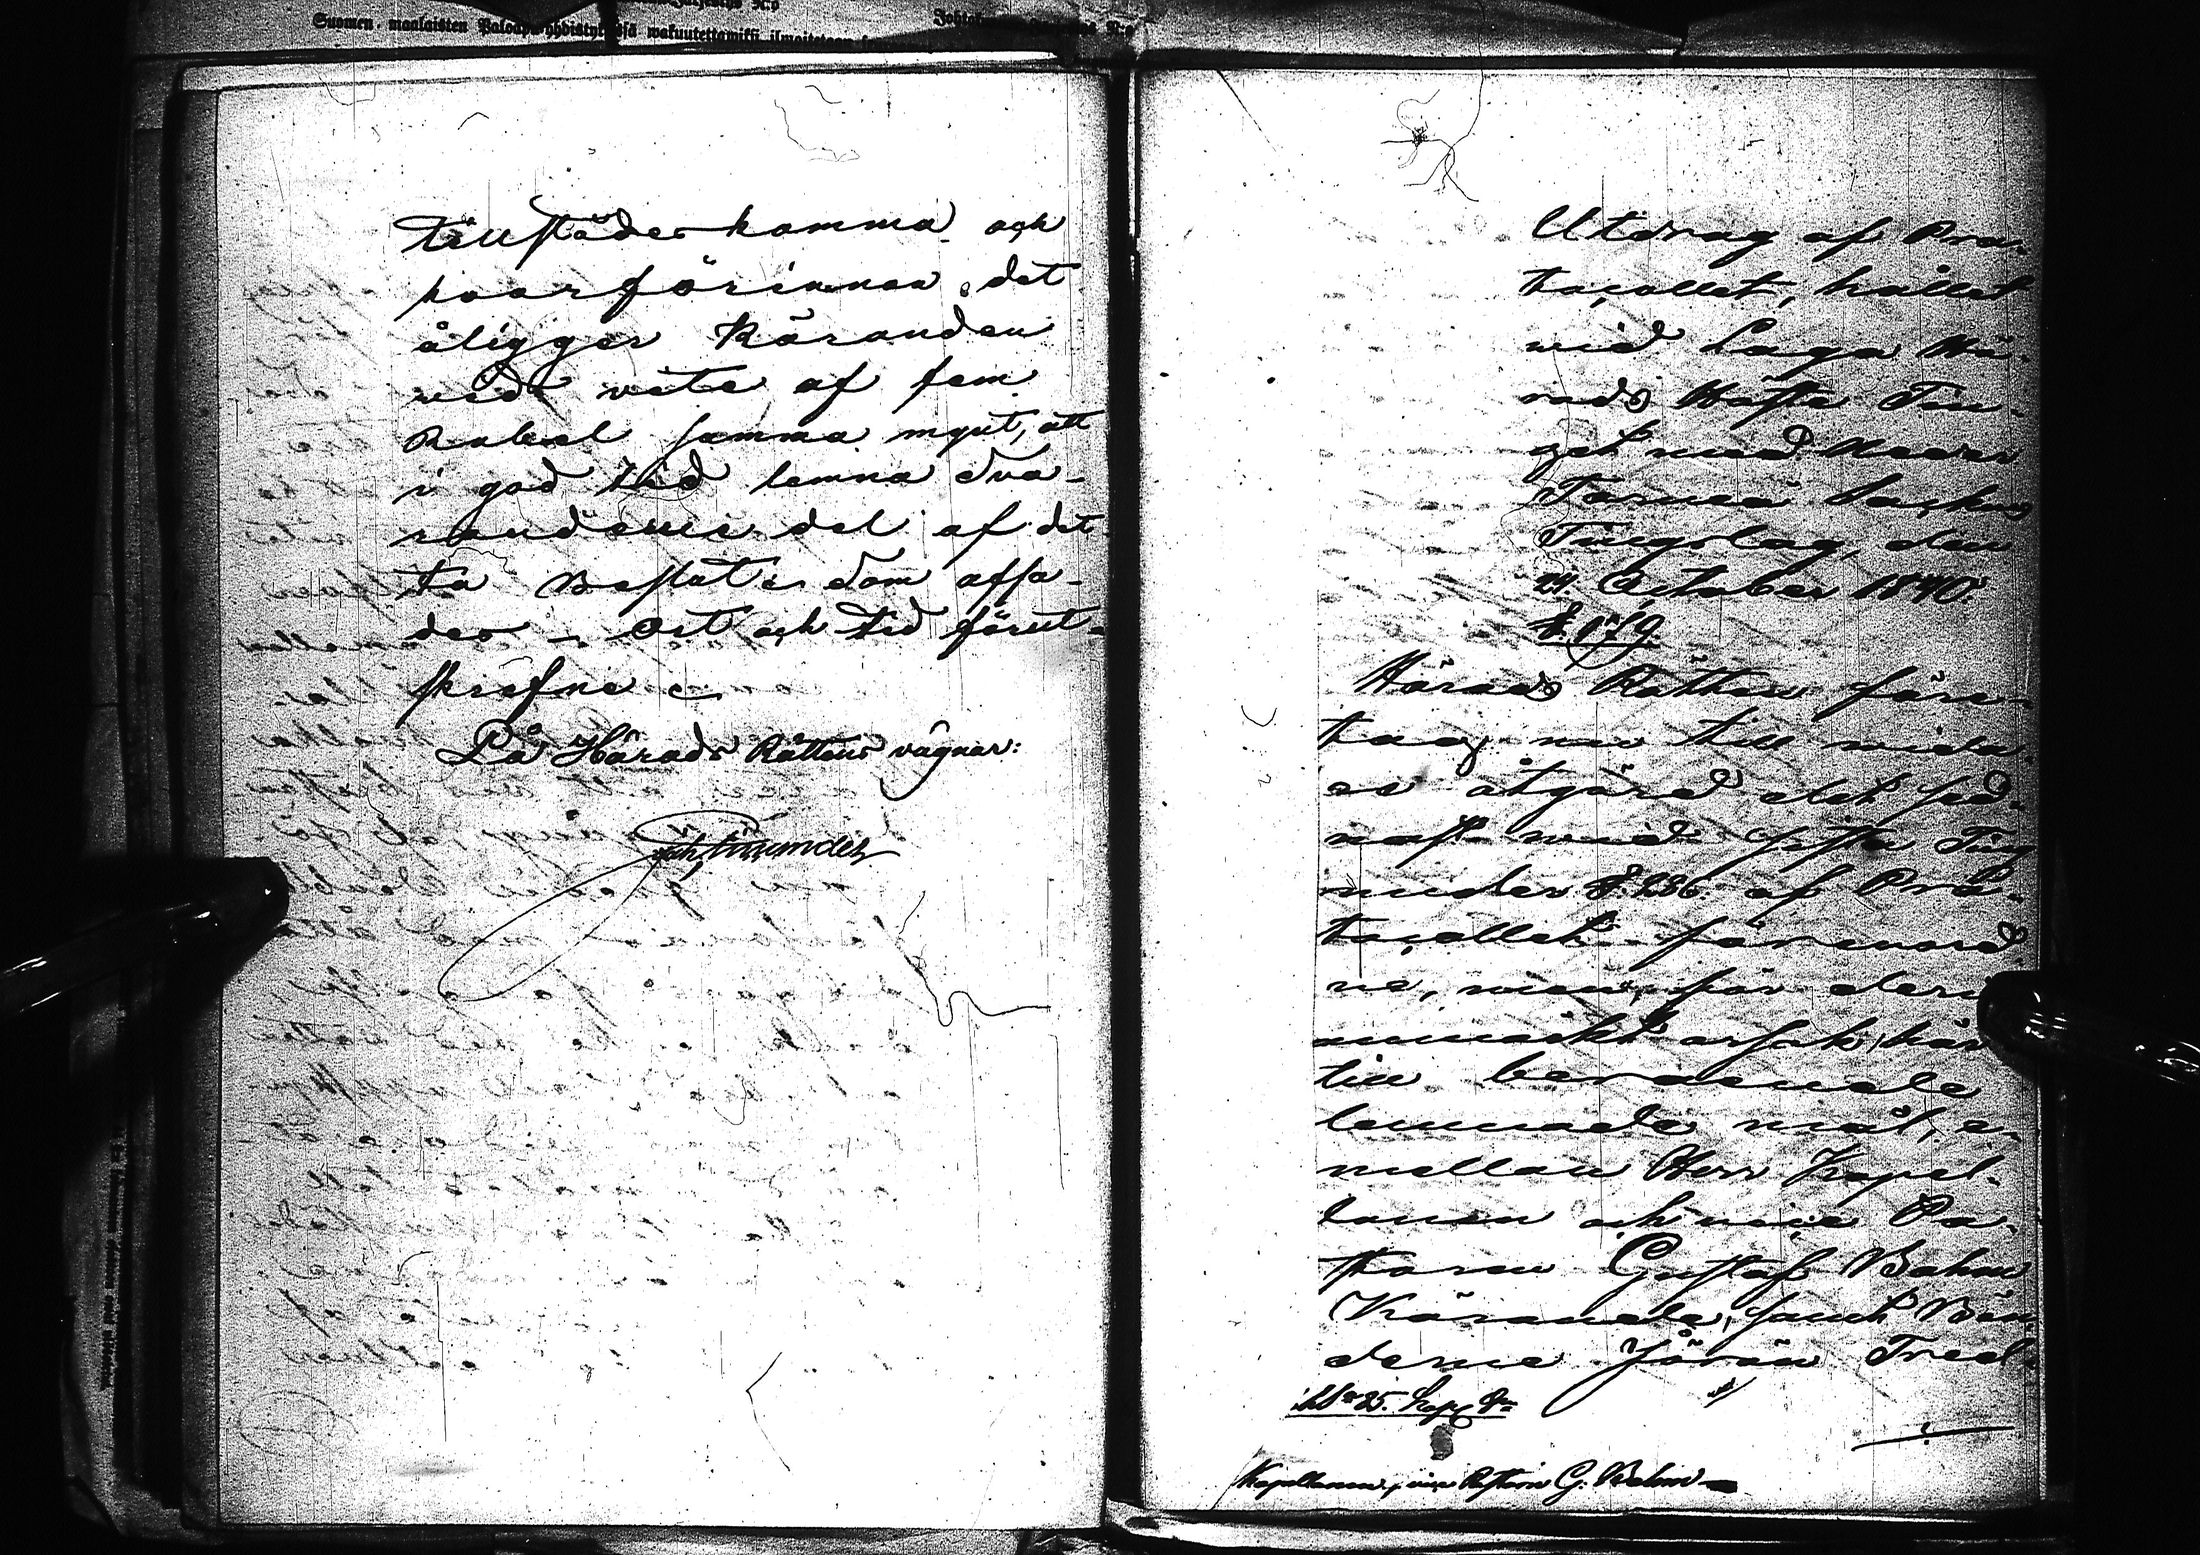 Suomen maalaisten Paloapu-yhdistyksessä wakuutettawiksi ilmoitetaan
tillstädes komma och
hvarförinnan det
åligger Käranden
vid vite af fem
Rubel samma mynt, att
i god tid lemna Sva-
randerne del af det-
ta Beslut; Som afsa-
des - Ort och tid förut-
skrefne
På Härads Rättens vägnar:
Utdrag af Pro-
tocollet, hållet
wid Laga Hä-
rads Höste Tin-
get med Neder
Torneå Sockens
Tingslag, den
24. October 1840.
§. 179.
Härads Rätten före-
tog nu till wida-
re åtgärd det sed-
nast wid sista Ting
under §. 236. af Pro-
tocollet förewand-
ne, men, för der
annmärkt orsak, här
till beroende
lemnade mål, e-
mellan Herr Kapel-
lanen och vice Pa-
storn Gustaf Bohm
Kärande, samt Bön-
derne Jöran Fred-
25. Kop. Sr
Kapellanen, vice Pastorn G. Bohm